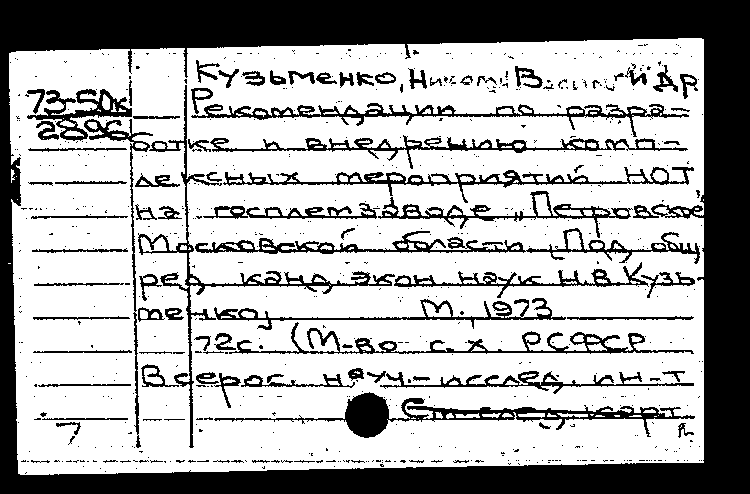 Кузьменко, Николай В. и др
73-50к
2896
Рекомендации по разра=
ботке и внедрению комп-
лексных мероприятий НОТ
на госплемзаводе „Петровское"
Московской области. [Под общ.
ред. канд. экон. наук Н.В. Кузь-
менко]. М., 1973
72с. (М-во с. х. РСФСР
Всерос. науч.-исслед. ин-т
См след карт
7